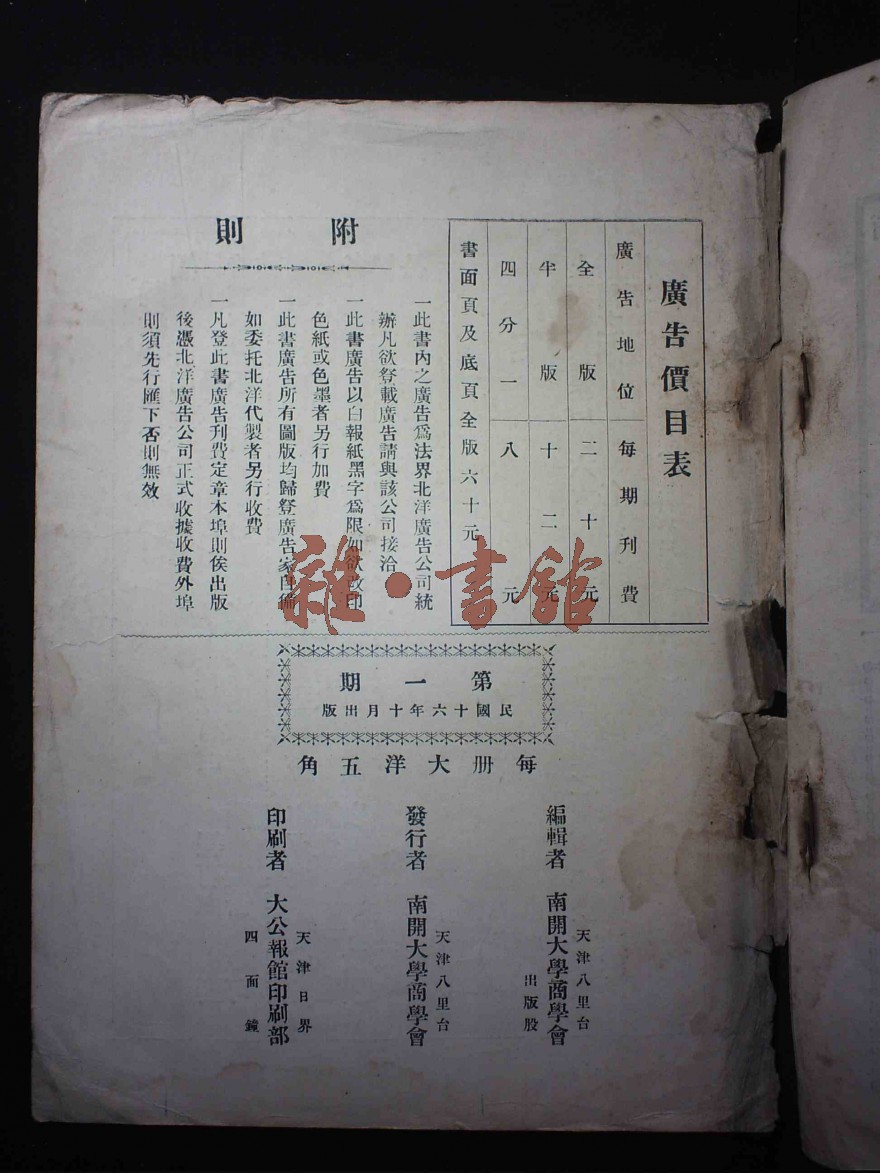 廣告價目表
廣告地位 每期刊費
全版 二十元
半版 十二元
四分一 八元
書面頁及底頁全版六十元
附則
一此書內之廣告爲法界北洋廣告公司統
辦凡欲登載廣告請與該公司接洽
一此書廣告以白報紙黑字爲限如欲改印
色紙或色墨者另行加費
一此書廣告所有圖版均歸登廣告家自備
如委托北洋代製者另行收費
一凡登此書廣告刊費定章本埠則俟出版
後憑北洋廣告公司正式收據收費外埠
則須先行匯下否則無效
雜·書館
第一期
民國十六年十月出版
每册大洋五角
編輯者 南開大學商學會
天津八里台
出版股
發行者 南開大學商學會
天津八里台
印刷者 大公報館印刷部
天津日界
四面鐘